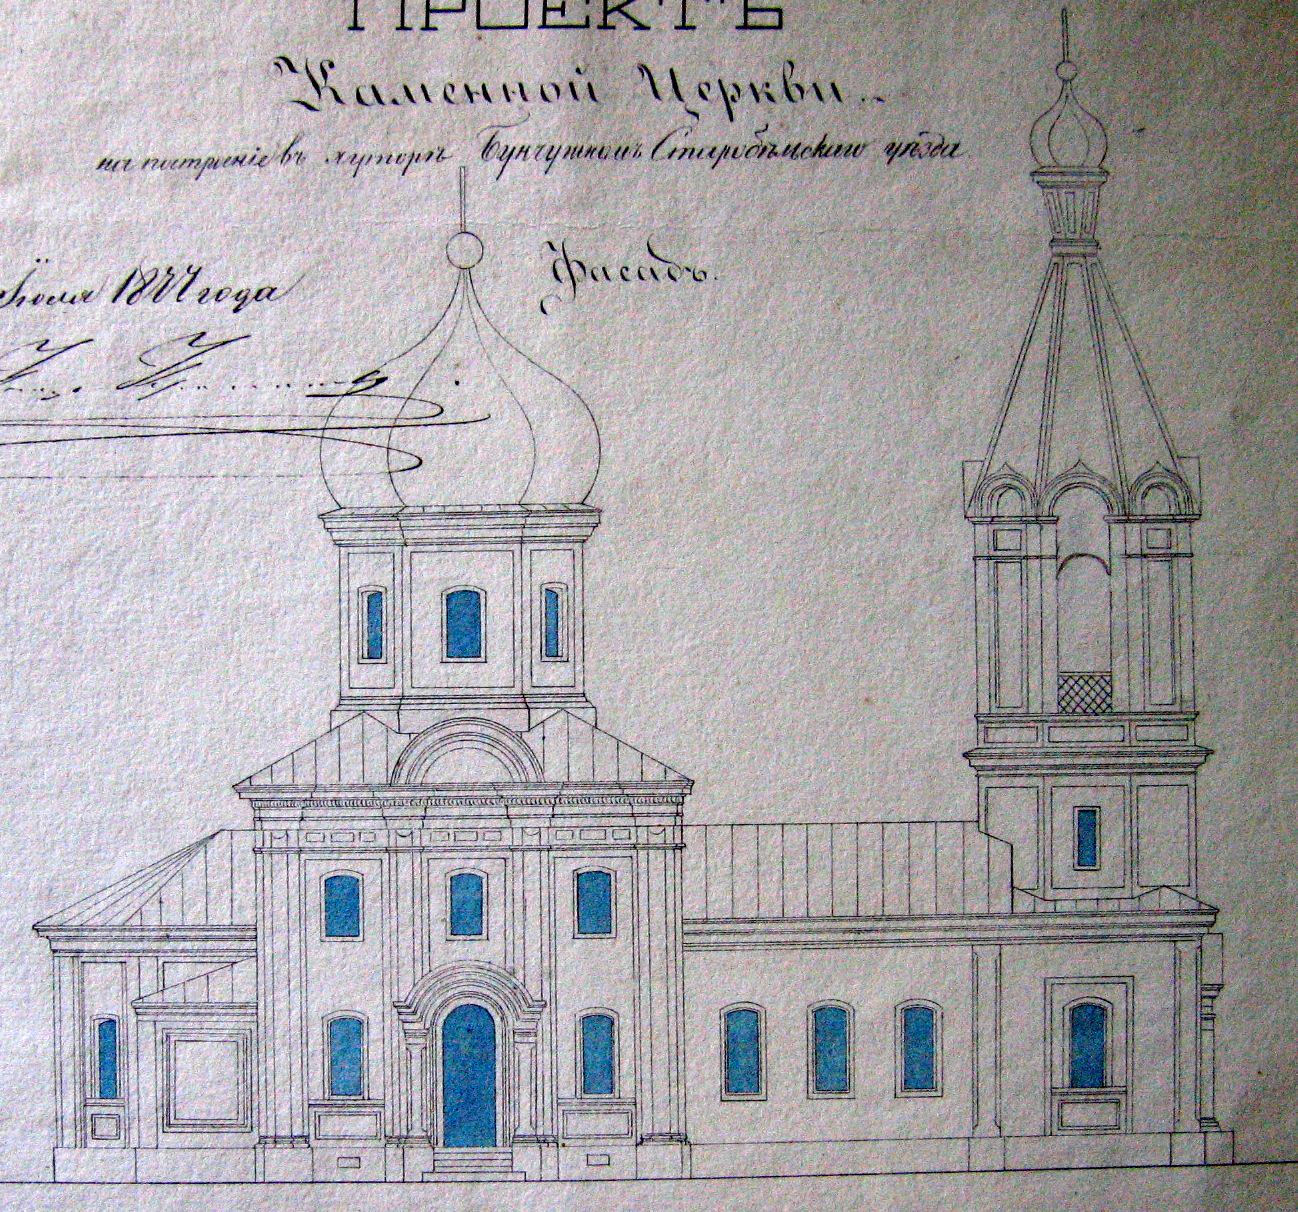 ПРОЕКТЪ
Каменной Церкви
на построеніе въ хуторѣ Бунчужномъ Старобѣльскаго уѣзда
Фасадъ.
Іюля 1877 года